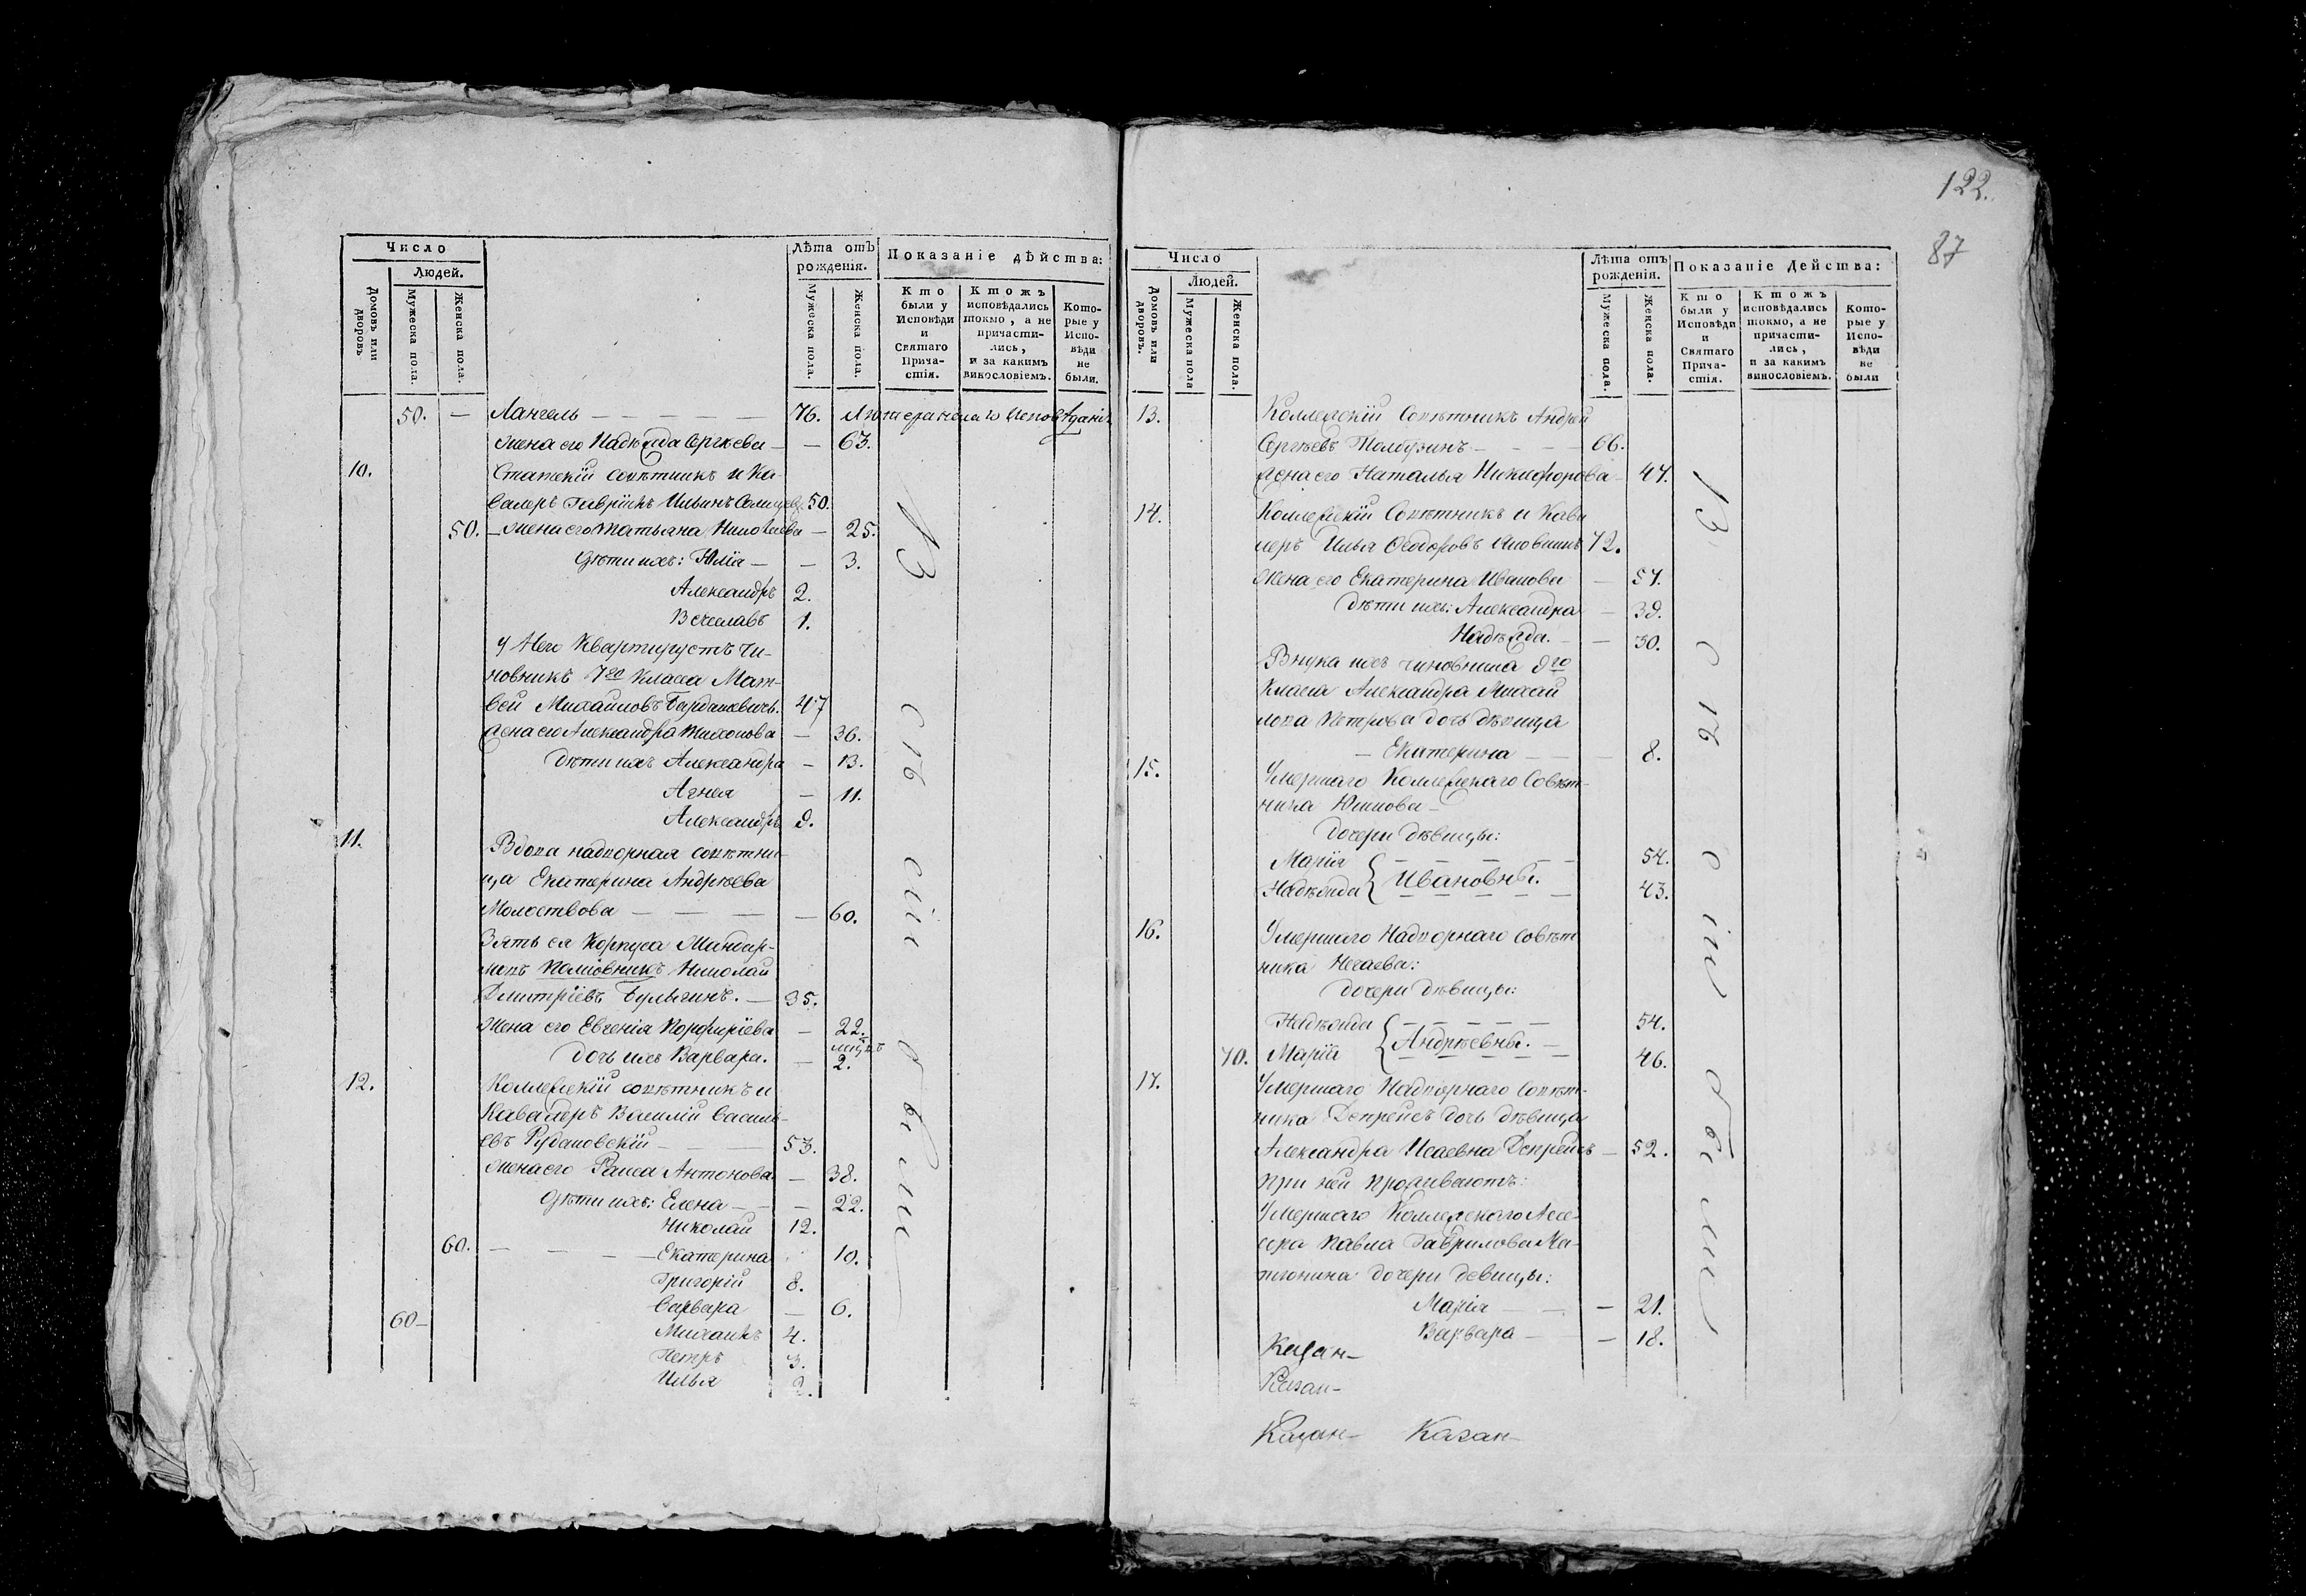 122.
87
Число
Людей.
Домовъ или дворовъ
Мужеска пола.
Женска пола.
Лѣта отъ рожденія.
Мужеска пола.
Женска пола.
Показаніе дѣйства:
Кто были у Исповѣди и Святаго Прича-стія.
Ктожъ исповѣдались токмо, а не причасти-лись, и за какимъ винословіемъ.
Кото-рые у Испо-вѣди не были.
50. — Лангель — 76. Лютеранскаго исповѣданія
Жена его Надежда Сергѣева — — 63.
10. Статскій совѣтникъ и Ка-
валеръ Гавріилъ Ильинъ 50.
50. — Жена его Татьяна — 25.
Дѣти ихъ: Юлія — — 3.
Александръ 2.
Всеславъ 1.
У него квартируетъ чи-
новникъ 7го класса Мат-
вей Михайловъ 47
Жена его Александра — 36.
Дѣти ихъ Александра — 13.
Агнея — 11.
Александръ 9.
11. Вдова надворная совѣтни-
ца Екатерина Андрѣева
Молоствова — — — — 60.
Зять ея Корпуса
Полковникъ Николай
Дмитріевъ Булыгинъ. — 35.
Жена его Евгенія Порфиріева — 22.
Дочь ихъ Варвара. — 2.
12. Коллежскій совѣтникъ и
Кавалеръ Василій Василь-
евъ Рудановскій — 53.
Жена его Раиса Антонова — 38.
Дѣти ихъ: Елена — — 22.
Николай 12.
60. — — — — Екатерина 10.
Григорій 8.
Варвара — 6.
60 —
Михаилъ 4.
Петръ 3.
Илья 2.
Число
Людей.
Домовъ или дворовъ.
Мужеска пола
Женска пола.
Лѣта отъ рожденія.
Мужеска пола.
Женска пола.
Показаніе Действа:
Кто были у Исповѣди и Святаго Прича-стія.
Ктожъ исповѣдались токмо, а не причасти-лись, и за какимъ винословіемъ.
Кото-рые у Испо-вѣди не были
13. Коллежскій Совѣтникъ Андрей
Сергѣевъ — — — 66.
Жена его Наталья Никифорова — 47.
14. Коллежскій Совѣтникъ и Кава
леръ Илья Ѳеодоровъ 72.
Жена его Екатерина Иванова — 57.
Дѣти ихъ: Александра — 39.
Надежда. — — 30.
Внука ихъ чиновника 9го
Класса Александра Михай
лова Петрова дочь дѣвица
— Екатерина — — 8.
15. Умершаго Коллежскаго Совѣт-
ника Юшкова —
Дочери дѣвицы:
Марія — — — — 54.
Ивановны.
Надежда — — — — 43.
16. Умершаго Надворнаго Совѣт
ника Нечаева:
Дочери дѣвицы:
Надежда — — — — 54.
Андрѣевны. —
70. Марія — — — — 46.
17. Умершаго Надворнаго Совѣт-
ника Депрейсъ дочь дѣвица
Александра Исаевна Депрейсъ — 52.
При ней проживаютъ:
Умершаго Коллежскаго Ассе-
сора Павла Гаврилова Ма-
тюнина дочери девицы:
Марія — — — 21.
Варвара — — 18.
Казан-
Казан-
Казан- Казан-
Всѣ сіи были
Всѣ сіи были